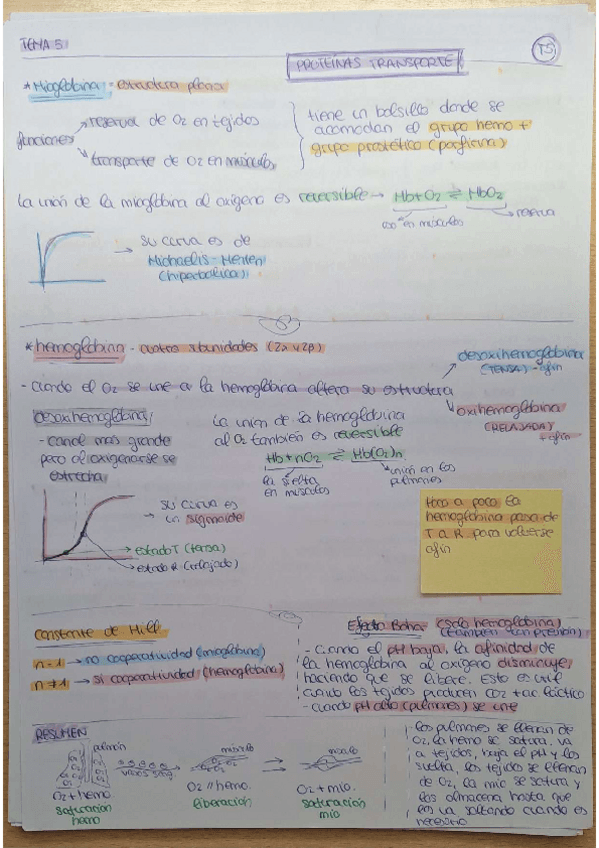 TEMA 5
T5
PROTEÍNAS TRANSPORTE
* Mioglobina - estructura plana
funciones
reserva de O2 en tejidos
transporte de O2 en músculos
tiene un bolsillo donde se
acomodan el grupo hemo +
grupo prostético (porfirina)
La unión de la mioglobina al oxígeno es reversible → Hb+O2 ⇌ HbO2
en músculos
reserva
→ su curva es de
Michaelis - Menten
(hiperbólica)
* hemoglobina - cuatro subunidades (2α y 2β)
- Cuando el O2 se une a la hemoglobina altera su estructura
desoxihemoglobina
(TENSA) - afín
oxihemoglobina
(RELAJADA)
+ afín
desoxihemoglobina:
- Canal más grande
pero al oxigenarse se
estrecha
La unión de la hemoglobina
al O2 también es reversible
Hb + nO2 ⇌ Hb(O2)n
la suelta
en músculos
unión en los
pulmones
→ su curva es
un sigmoide
→ estado T (tensa)
→ estado R (relajado)
Poco a poco la
hemoglobina pasa de
T a R para volverse
afín
Constante de Hill
n = 1 → no cooperatividad (mioglobina)
n ≠ 1 → sí cooperatividad (hemoglobina)
Efecto Bohr (solo hemoglobina)
(también con presión)
- Cuando el pH baja, la afinidad de
la hemoglobina al oxígeno disminuye,
haciendo que se libere. Esto es útil
cuando los tejidos producen CO2 + ac láctico
- cuando pH alto (pulmones) se une
RESUMEN
pulmón
músculo
músculo
O2 + hemo
saturación
hemo
O2 // hemo
liberación
O2 + mio
saturación
mio
los pulmones se llenan de
O2, la hemo se satura, va
a tejidos, baja el pH y los
suelta, los tejidos se llenan
de O2, la mio se satura y
los almacena hasta que
los va soltando cuando es
necesario